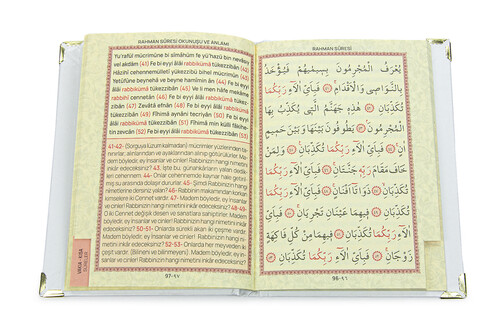 RAHMAN SÛRESİ OKUNUŞU VE ANLAMI
Yu'raful mücrimûne bi sîmâhüm fe yü'hazü bin nevâsî
vel akdâm (41) Fe bi eyyi âlâi rabbikümâ tükezzibân (42)
Hâzihî cehennemülletî yükezzibü bihel mücrimûn (43)
Yetûfûne beynehâ ve beyne hamîmin ân (44) Fe bi eyyi
âlâi rabbikümâ tükezzibân (45) Ve li men hâfe mekâme
rabbihî cennetân (46) Fe bi eyyi âlâi rabbikümâ tükezzi
bân (47) Zevâtâ efnân (48) Fe bi eyyi âlâi rabbikümâ
tükezzibân (49) Fîhimâ aynâni tecriyân (50) Fe bi eyyi
âlâi rabbikümâ tükezzibân (51) Fîhimâ min külli fâkihe
tin zevcân (52) Fe bi eyyi âlâi rabbikümâ tükezzibân (53)
41-42- (Sorguya lüzum kalmadan) mücrimler yüzlerinden ta
nınırlar, alınlarından ve ayaklarından alınıp götürülürler. Ma
dem böyledir; ey insanlar ve cinler! Rabbinizin hangi nime
tini inkâr edeceksiniz? 43. İşte bu, günahkârların yalan ded
ikleri cehennemdir. 44- Onlar cehennemde kaynar hale getiril
miş su arasında dolaşır dururlar. 45- Şimdi Rabbinizin hangi
nimetlerine dersiniz yalan? 46- Rabbinin makamından korkan
kimselere iki Cennet vardır. 47- Madem böyledir; ey insanlar
ve cinler! Rabbinizin hangi nimetini inkâr edeceksiniz? 48-49-
O iki Cennet değişik desen ve sanatlara sahiptirler. Madem
böyledir; ey insanlar ve cinler! Rabbinizin hangi nimetini inkâr
edeceksiniz? 50-51- Onlarda sürekli akan iki çeşme vardır.
Madem böyledir; ey insanlar ve cinler! Rabbinizin hangi ni
metini inkâr edeceksiniz? 52-53- Onlarda her meyveden iki
çeşit vardır. (Bilinen ve bilinmeyen). Madem böyledir; ey ins
anlar ve cinler! Rabbinizin hangi nimetini inkâr edeceksiniz?
97-٤٧
RAHMAN SÛRESİ
يُعْرَفُ الْمُجْرِمُونَ بِسِيمٰيهُمْ فَيُؤْخَذُ
بِالنَّوَاصِي وَالْاَقْدَامِ ﴿٤١﴾ فَبِاَيِّ اٰلَٓاءِ رَبِّكُمَا
تُكَذِّبَانِ ﴿٤٢﴾ هٰذِهِ جَهَنَّمُ الَّتِي يُكَذِّبُ بِهَا
الْمُجْرِمُونَ ﴿٤٣﴾ يَطُوفُونَ بَيْنَهَا وَبَيْنَ حَمِيمٍ
اٰنٍ ﴿٤٤﴾ فَبِاَيِّ اٰلَٓاءِ رَبِّكُمَا تُكَذِّبَانِ ﴿٤٥﴾ وَلِمَنْ
خَافَ مَقَامَ رَبِّهِ جَنَّتَانِ ﴿٤٦﴾ فَبِاَيِّ اٰلَٓاءِ رَبِّكُمَا
تُكَذِّبَانِ ﴿٤٧﴾ ذَوَاتَٓا اَفْنَانٍ ﴿٤٨﴾ فَبِاَيِّ اٰلَٓاءِ رَبِّكُمَا
تُكَذِّبَانِ ﴿٤٩﴾ فِيهِمَا عَيْنَانِ تَجْرِيَانِ ﴿٥٠﴾ فَبِاَيِّ
اٰلَٓاءِ رَبِّكُمَا تُكَذِّبَانِ ﴿٥١﴾ فِيهِمَا مِنْ كُلِّ فَاكِهَةٍ
زَوْجَانِ ﴿٥٢﴾ فَبِاَيِّ اٰلَٓاءِ رَبِّكُمَا تُكَذِّبَانِ ﴿٥٣﴾
96-٤٦